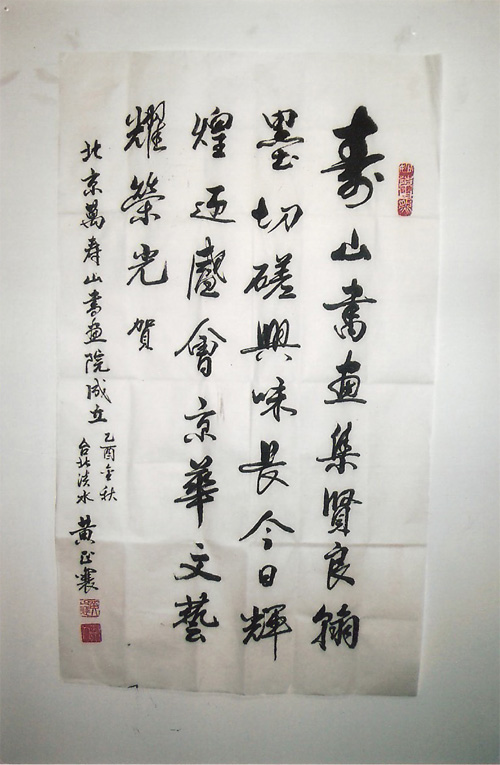 壽山書畫集賢良翰
墨切磋興味長今日輝
煌迎盛會京華文藝
耀榮光 賀
北京萬寿山書畫院成立
乙酉金秋
台北淡水 黃正襄